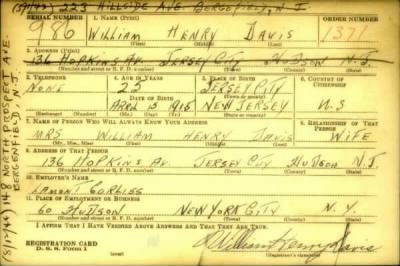 (5/1/43) 223 HILLSIDE AVE. BERGENFIELD, N.J.
SERIAL NUMBER 1. NAME (Print) ORDER NUMBER
986 WILLIAM HENRY DAVIS 1371
(First) (Middle) (Last)
2. ADDRESS (Print)
136 HOPKINS AV. JERSEY CITY HUDSON N.J.
(Number and street or R. F. D. number) (Town) (County) (State)
3. TELEPHONE 4. AGE IN YEARS 5. PLACE OF BIRTH 6. COUNTRY OF CITIZENSHIP
NONE 25 JERSEY CITY
DATE OF BIRTH (Town or county)
APRIL 3 1915 NEW JERSEY U.S
(Exchange) (Number) (Mo.) (Day) (Yr.) (State or country)
7. NAME OF PERSON WHO WILL ALWAYS KNOW YOUR ADDRESS 8. RELATIONSHIP OF THAT PERSON
MRS WILLIAM HENRY DAVIS WIFE
(Mr., Mrs., Miss) (First) (Middle) (Last)
9. ADDRESS OF THAT PERSON
136 HOPKINS AV. JERSEY CITY HUDSON N.J.
(Number and street or R. F. D. number) (Town) (County) (State)
10. EMPLOYER'S NAME
LAMONT CORLISS
11. PLACE OF EMPLOYMENT OR BUSINESS
60 HUDSON NEW YORK CITY N.Y.
(Number and street or R. F. D. number) (Town) (County) (State)
I AFFIRM THAT I HAVE VERIFIED ABOVE ANSWERS AND THAT THEY ARE TRUE.
REGISTRATION CARD
D. S. S. Form 1
William Henry Davis
(Registrant's signature)
(8/12/44) 148 NORTH PROSPECT AVE.
BERGENFIELD, N.J.